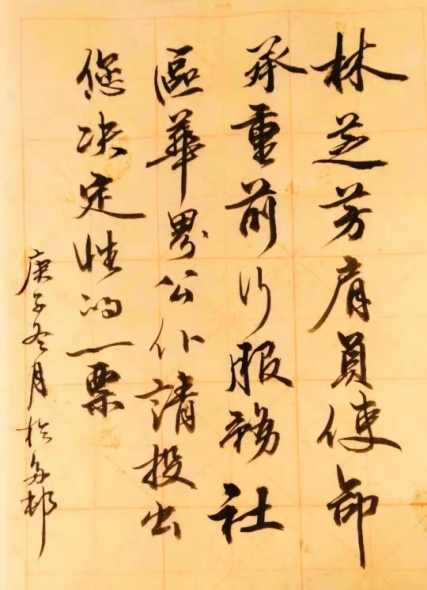 林芝芳肩員使命
承重前行服務社
區華界公仆請投出
您决定性的一票
庚子冬月於多村